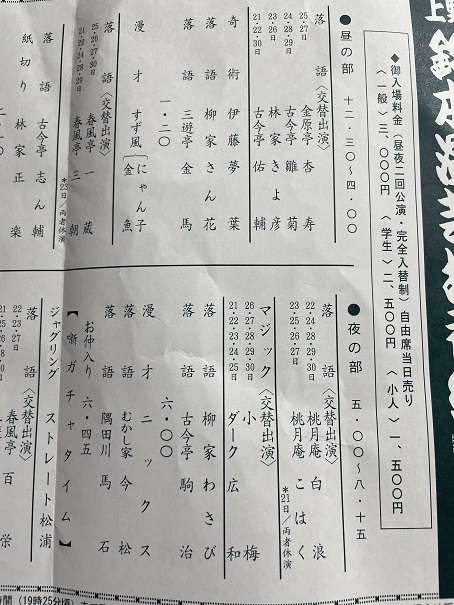 ◆御入場料金（昼夜二回公演・完全入替制）自由席当日売り
〈一般〉三、〇〇〇円　〈学生〉二、五〇〇円　〈小人〉一、五〇〇円
●昼の部　十二・三〇～四・〇〇
落語〈交替出演〉
25・26・27日　金原亭杏寿
24・28・29日　古今亭雛菊
23日　林家きよ彦
21・22・30日　古今亭佑輔
奇術　伊藤夢葉
落語　柳家さん花
落語　三遊亭金馬
一・二〇
漫才　すず風 にゃん子 金魚
落語〈交替出演〉
25・26・27・30日　春風亭一蔵
21・22・24・28・29日　春風亭三朝
＊23日／両者休演
落語　古今亭志ん輔
紙切り　林家正楽
●夜の部　五・〇〇～八・十五
落語〈交替出演〉
22・24・28・29・30日　桃月庵白浪
23・25・26・27日　桃月庵こはく
＊21日／両者休演
マジック〈交替出演〉
26・27・28・29・30日　小梅
21・22・23・24・25日　ダーク広和
落語　柳家わさび
落語　古今亭駒治
六・〇〇
漫才　ニックス
落語　むかし家今松
落語　隅田川馬石
お仲入り　六・四五
【噺ガチャタイム】
ジャグリング　ストレート松浦
落語〈交替出演〉
22・23・27日　春風亭百栄
（19時25分頃）